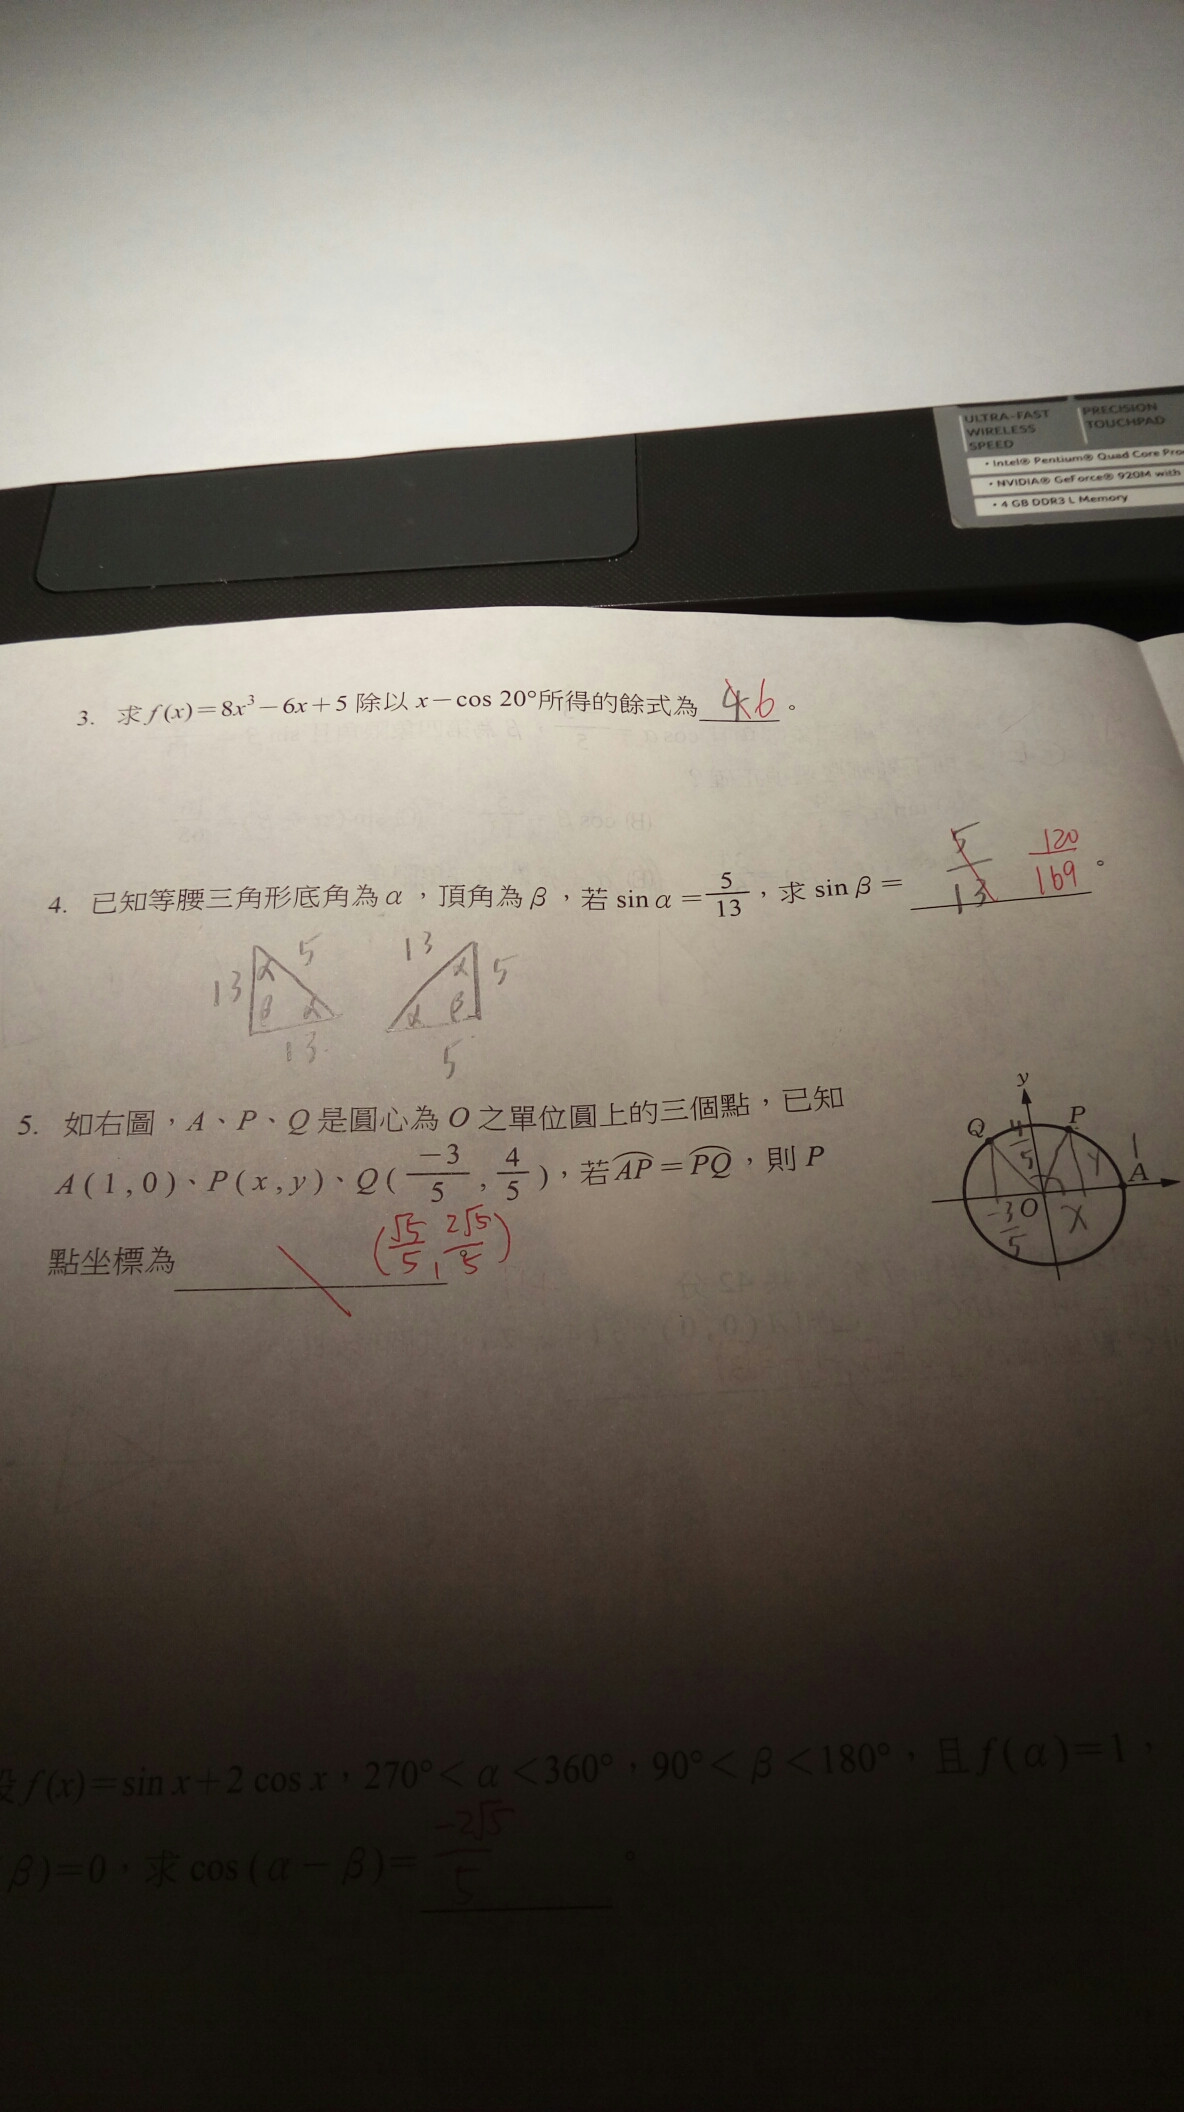 ULTRA-FAST WIRELESS SPEED
PRECISION TOUCHPAD
• Intel® Pentium® Quad Core
• NVIDIA® GeForce® 920M with
• 4 GB DDR3 L Memory
3. 求 f(x)=8x³-6x+5 除以 x-cos 20°所得的餘式為 4 6 。
4. 已知等腰三角形底角為 α,頂角為 β,若 sin α = 5/13,求 sin β = 5/13 120/169 。
13 5 α β α 13
13 α 5 α β 5
5. 如右圖,A、P、Q 是圓心為 O 之單位圓上的三個點,已知
A(1,0)、P(x,y)、Q(-3/5, 4/5),若 AP=PQ,則 P
點坐標為 (√5/5, 2√5/5)
y Q 4/5 P 1 A y -3/5 O x
設 f(x)=sin x+2 cos x,270°< α <360°,90°< β <180°,且 f(α)=1,
β)=0,求 cos(α-β)= -2√5/5 。